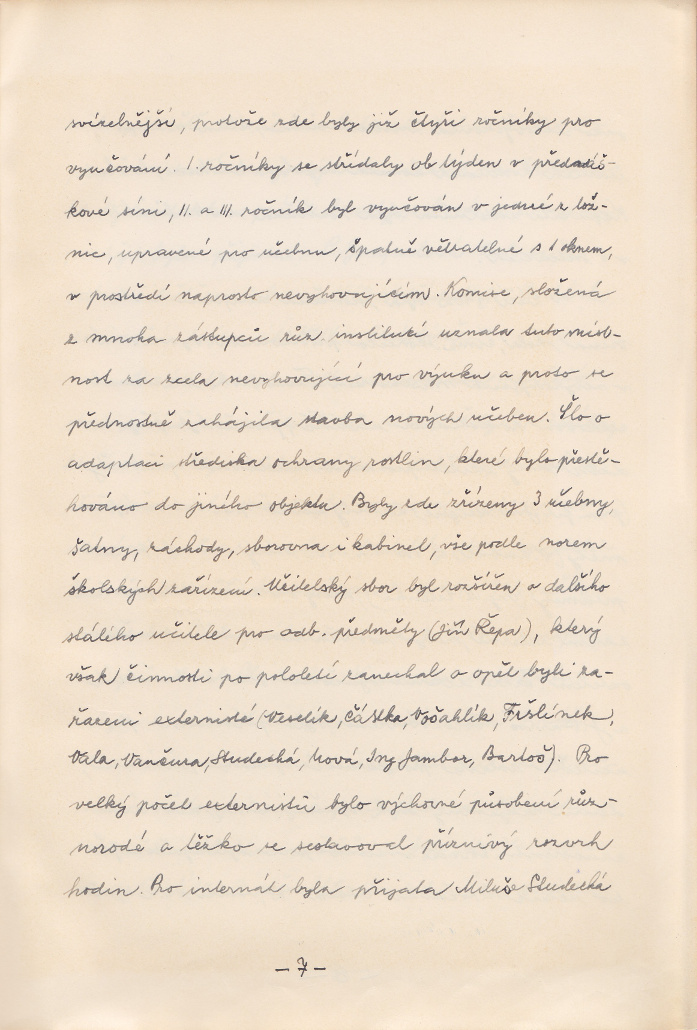 svízelnější, protože zde byly již čtyři ročníky pro
vyučování. I. ročníky se střídaly ob týden v
kové síni, II. a III. ročník byl vyučován v jedné z lož-
nic, upravené pro učebnu, špatně větratelné s 1 oknem,
v prostředí naprosto nevyhovujícím. Komise, složená
z mnoha zástupců růz. institucí uznala tuto míst-
nost za zcela nevyhovující pro výuku a proto se
přednostně zahájila stavba nových učeben. Šlo o
adaptaci střediska ochrany rostlin, které bylo přestě-
hováno do jiného objektu. Byly zde zřízeny 3 učebny,
šatny, záchody, sborovna i kabinet, vše podle norem
školských zařízení. Učitelský sbor byl rozšířen o dalšího
stálého učitele pro odb. předměty (Jiří Řepa), který
však činnosti po pololetí zanechal a opět byli za-
řazeni externisté (Veselík, Částka, Vošahlík, Fršlínek,
Vala, Vančura, Studecká, Nová, Ing Jambor, Bartoš). Pro
velký počet externistů bylo výchovné působení růz-
norodé a těžko se sestavoval příznivý rozvrh
hodin. Pro internát byla přijata Miluše Studecká
- 7 -